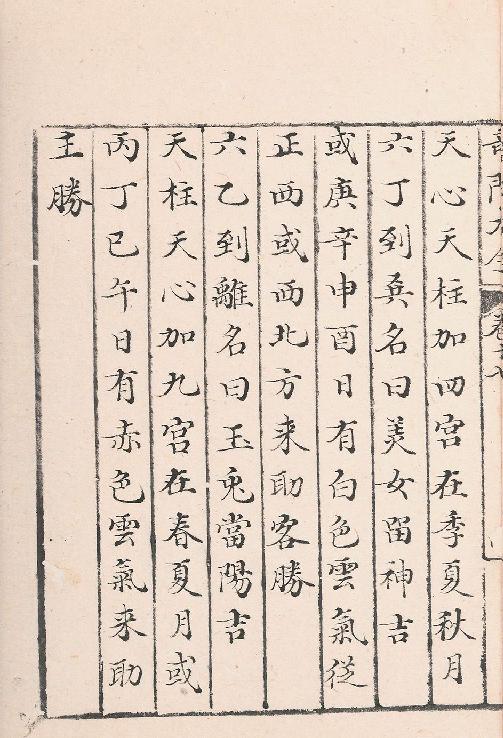 天心天柱加四宮在季夏秋月
六丁到兵名曰美女留神吉
或庚辛申酉日有白色雲氣從
正西或西北方来助客勝
六乙到離名曰玉兎當陽吉
天柱天心加九宮在春夏月或
丙丁巳午日有赤色雲氣来助
主勝